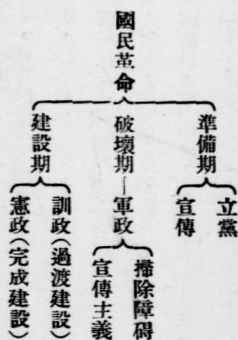 國民革命
準備期
立黨
宣傳
破壞期—軍政
掃除障碍
宣傳主義
建設期
訓政(過渡建設)
憲政(完成建設)